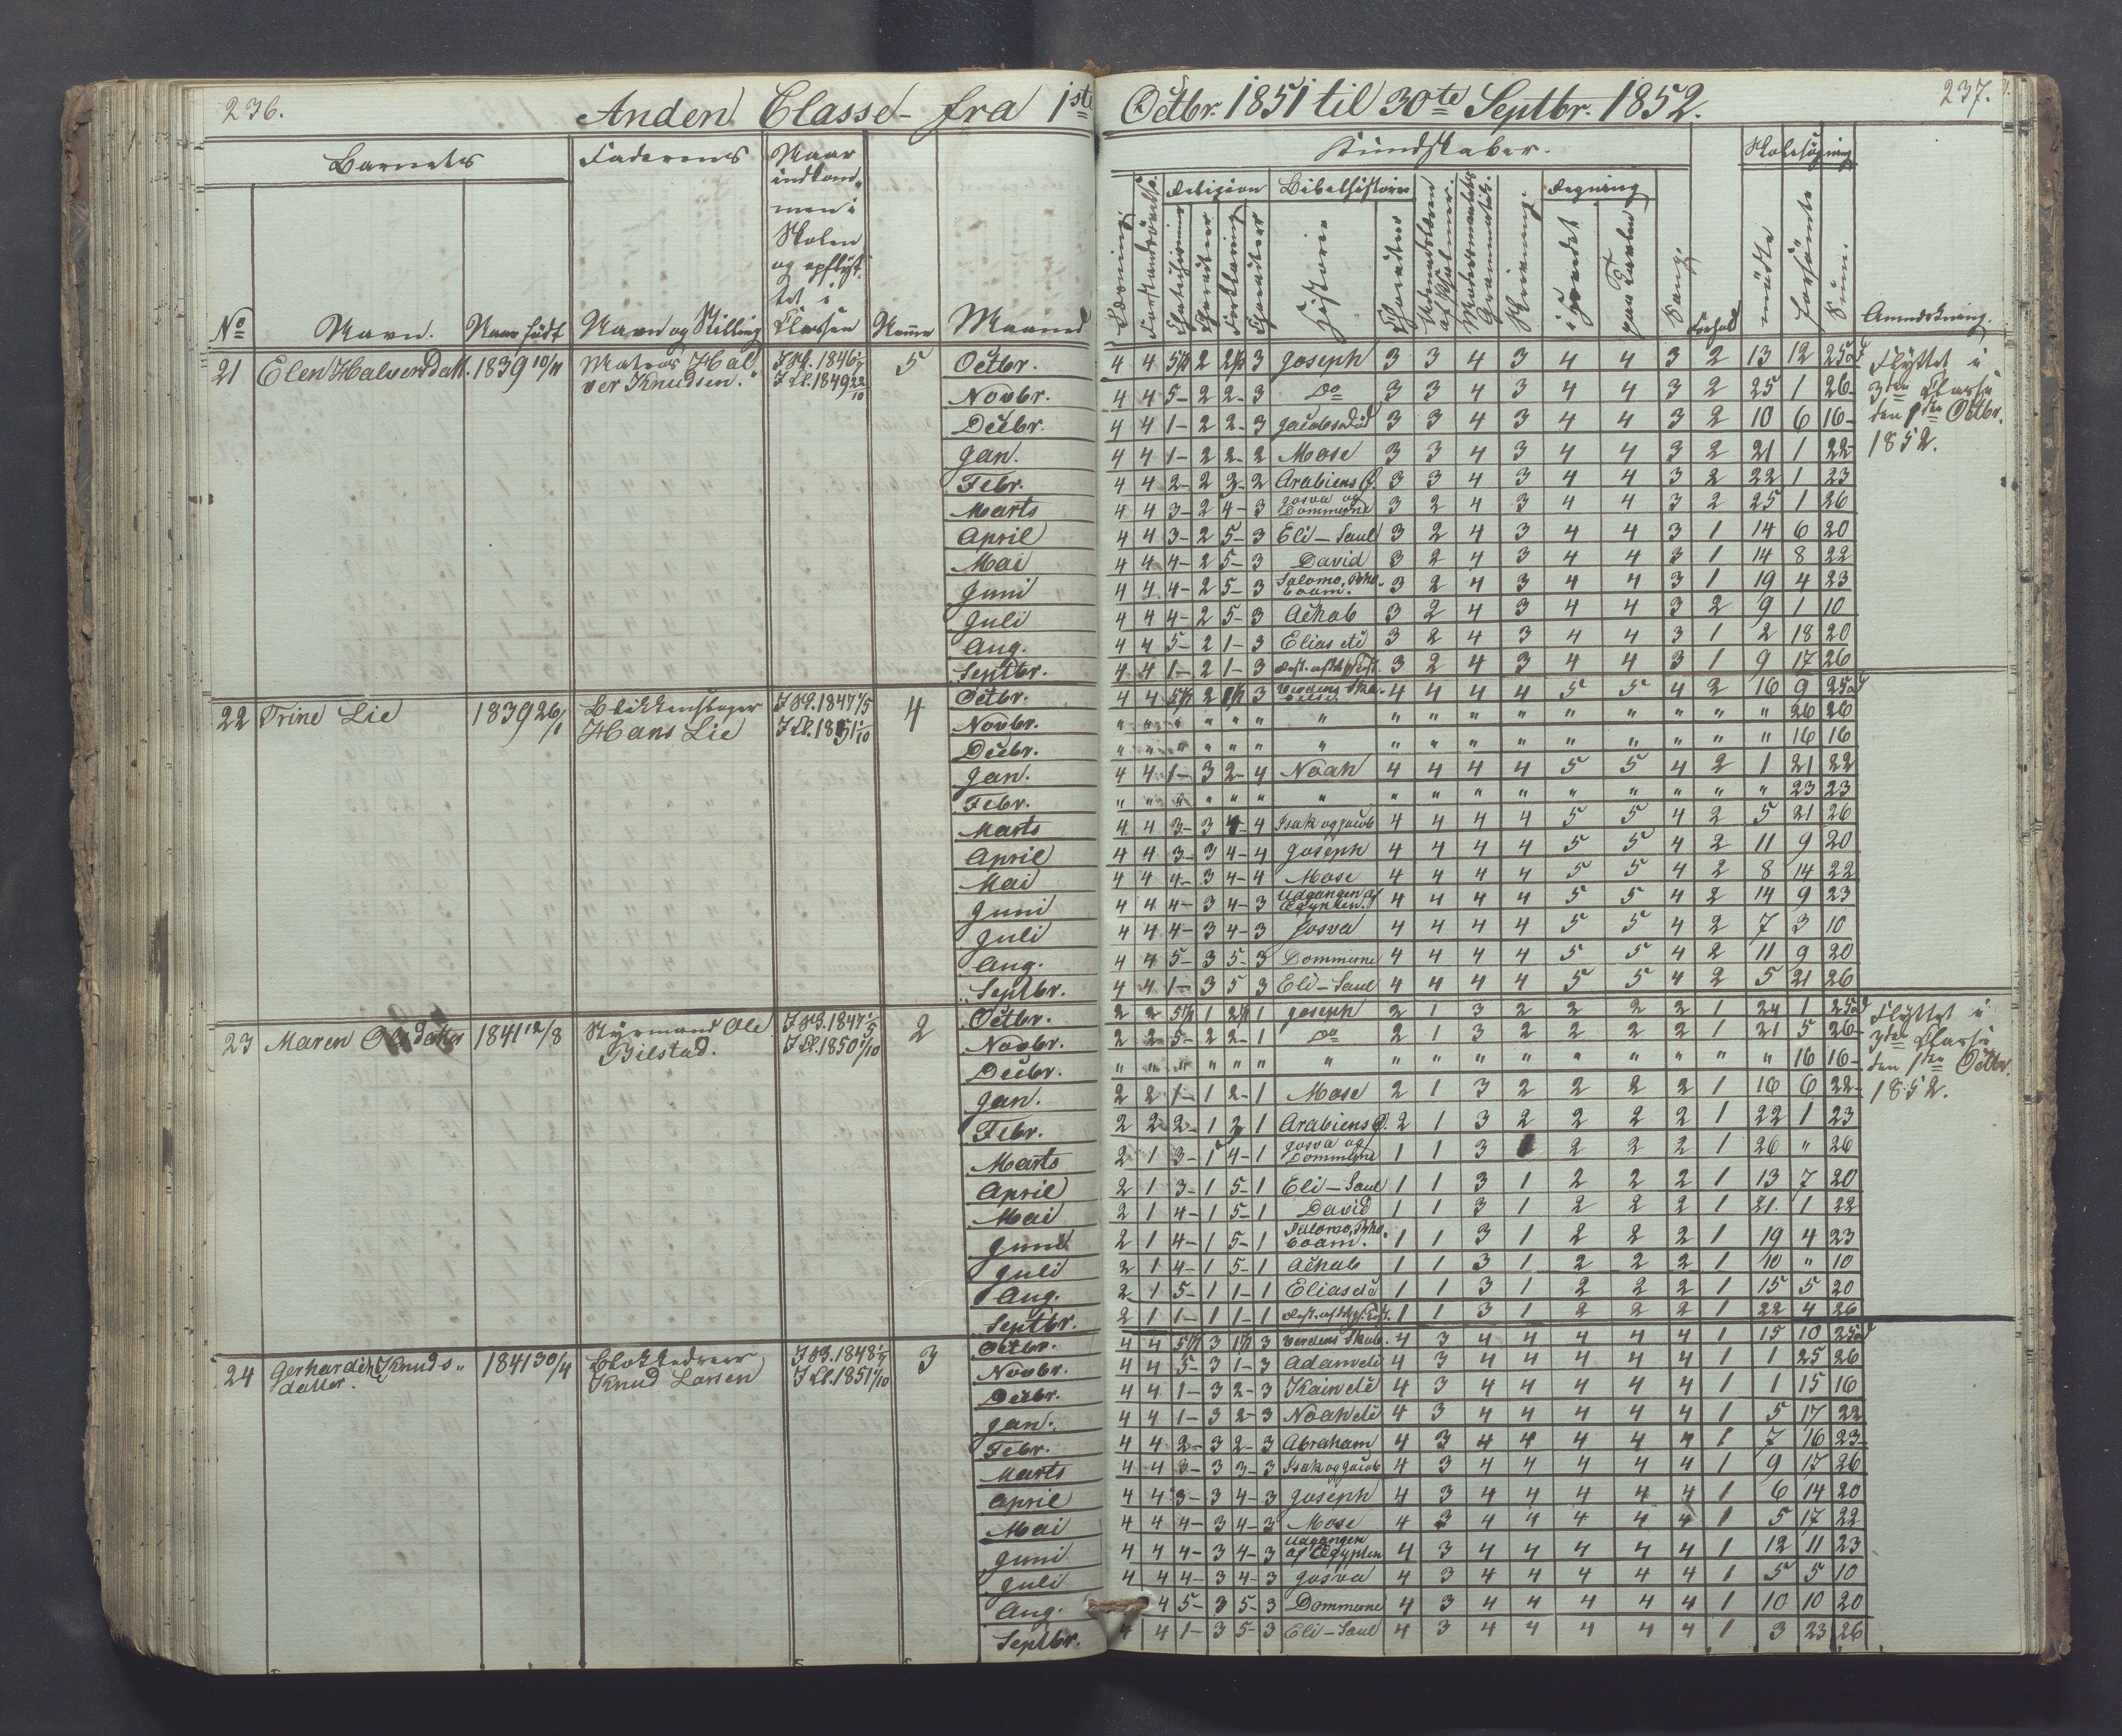 236. Anden Classe fra 1ste Octbr. 1851 til 30te Septbr. 1852. 237.
Barnets Faderens Naar
indkom-
men i
Skolen
og opflyt-
tet i
Classen
No Navn. Naar født Navn og Stilling Numr Maaned
Kundskaber. Skolesøgning
Læsning Forstandsøvelse Religion Bibelhistorie Skrivning Regning Sang Forhold mødte forsømte Sum. Anmærkning.
Historie i Hovedet paa Tavlen
21 Elen Halversdatt. 1839 10/11 Matros Hal- I Sk. 1846 I Cl. 1849 22/10 5
ver Knudsen.
Octbr. 4 4 5 2 2 3 Joseph 3 3 4 3 4 4 3 2 13 12 25 Flyttet i
Novbr. 4 4 5- 2 2- 3 Do 3 3 4 3 4 4 3 2 25 1 26 3die Classe
Decbr. 4 4 1- 2 2- 3 Jacobs Død 3 3 4 3 4 4 3 2 10 6 16 den 1ste Octbr.
Jan. 4 4 1- 2 2- 2 Mose 3 3 4 3 4 4 3 2 21 1 22 1852.
Febr. 4 4 2- 2 3- 2 Arabiens Ø. 3 3 4 3 4 4 3 2 22 1 23
Marts 4 4 3- 2 4- 3 Josva og Dommerne 3 2 4 3 4 4 3 2 25 1 26
April 4 4 3- 2 5- 3 Eli-Saul 3 2 4 3 4 4 3 1 14 6 20
Mai 4 4 4- 2 5- 3 David 3 2 4 3 4 4 3 1 14 8 22
Juni 4 4 4- 2 5- 3 Salomo, Rehaboam. 3 2 4 3 4 4 3 1 19 4 23
Juli 4 4 4- 2 5- 3 Achab 3 2 4 3 4 4 3 2 9 1 10
Aug. 4 4 5- 2 1- 3 Elias etc 3 2 4 3 4 4 3 1 2 18 20
Septbr. 4 4 1- 2 1- 3 3 2 4 3 4 4 3 1 9 17 26
22 Trine Lie 1839 26/1 Blikkenslager I Sk. 1847 1/5 I Cl. 1851 1/10 4
Hans Lie
Octbr. 4 4 5 2 3 Verdens Skabelse. 4 4 4 4 5 5 4 2 16 9 25
Novbr. " " " " " " " " " " " " " " " " 26 26
Decbr. " " " " " " " " " " " " " " " " 16 16
Jan. 4 4 1- 3 2- 4 Noah 4 4 4 4 5 5 4 2 1 21 22
Febr. " " " " " " " " " " " " " " " " 23 23
Marts 4 4 3- 3 4- 4 Isak og Jacob 4 4 4 4 5 5 4 2 5 21 26
April 4 4 3- 3 4- 4 Joseph 4 4 4 4 5 5 4 2 11 9 20
Mai 4 4 4- 3 4- 4 Mose 4 4 4 4 5 5 4 2 8 14 22
Juni 4 4 4- 3 4- 3 Udgangen af Ægypten. 4 4 4 4 5 5 4 2 14 9 23
Juli 4 4 4- 3 4- 3 Josva 4 4 4 4 5 5 4 2 7 3 10
Aug. 4 4 5- 3 5- 3 Dommerne 4 4 4 4 5 5 4 2 11 9 20
Septbr. 4 4 1- 3 5 3 Eli-Saul 4 4 4 4 5 5 4 2 5 21 26
23 Maren Olsdatter 1841 12/8 Styrmand Ole I Sk. 1847 1/5 I Cl. 1850 1/10 2
Bilstad.
Octbr. 2 2 5 1 2 1 Joseph 2 1 3 2 2 2 2 1 24 1 25 Flyttet i
Novbr. 2 2 5- 2 2- 1 Do 2 1 3 2 2 2 2 1 21 5 26 3die Classe
Decbr. " " " " " " " " " " " " " " " " 16 16 den 1ste Octbr.
Jan. 2 2 1- 1 2- 1 Mose 2 1 3 2 2 2 2 1 16 6 22 1852.
Febr. 2 2 2- 1 2 1 Arabiens Ø. 2 1 3 2 2 2 2 1 22 1 23
Marts 2 1 3- 1 4- 1 Josva og Dommerne 1 1 3 2 2 2 1 26 " 26
April 2 1 3- 1 5- 1 Eli-Saul 1 1 3 1 2 2 2 1 13 7 20
Mai 2 1 4- 1 5- 1 David 1 1 3 1 2 2 2 1 21. 1 22
Juni 2 1 4- 1 5- 1 Salomo, Rehaboam. 1 1 3 1 2 2 2 1 19 4 23
Juli 2 1 4- 1 5- 1 Achab 1 1 3 1 2 2 2 1 10 " 10
Aug. 2 1 5- 1 1- 1 Elias etc 1 1 3 1 2 2 2 1 15 5 20
Septbr. 2 1 1- 1 1- 1 1 1 3 1 2 2 2 1 22 4 26
24 Gerhardine Knuds- 1841 30/4 I Sk. 1848 I Cl. 1851 1/10 3
datter. Knud Larsen
Octbr. 4 4 5 3 1 3 Verdens Skab. 4 3 4 4 4 4 4 1 15 10 25
Novbr. 4 4 5- 3 1- 3 Adam etc 4 3 4 4 4 4 4 1 1 25 26
Decbr. 4 4 1- 3 2- 3 Kain etc 4 3 4 4 4 4 4 1 1 15 16
Jan. 4 4 1- 3 2- 3 Noah etc 4 3 4 4 4 4 4 1 5 17 22
Febr. 4 4 2- 3 2- 3 Abraham 4 3 4 4 4 4 4 1 7 16 23
Marts 4 4 3- 3 3- 3 Isak og Jacob 4 3 4 4 4 4 4 1 9 17 26
April 4 4 3- 3 4- 3 Joseph 4 3 4 4 4 4 4 1 6 14 20
Mai 4 4 4- 3 4- 3 Mose 4 3 4 4 4 4 4 1 5 17 22
Juni 4 4 4- 3 4- 3 Udgangen af Ægypten 4 3 4 4 4 4 4 1 12 11 23
Juli 4 4 4- 3 4- 3 Josva 4 3 4 4 4 4 4 1 5 5 10
Aug. 4 5- 3 5- 3 Dommerne 4 3 4 4 4 4 4 1 10 10 20
Septbr. 4 4 1- 3 5- 3 Eli-Saul 4 3 4 4 4 4 4 1 3 23 26